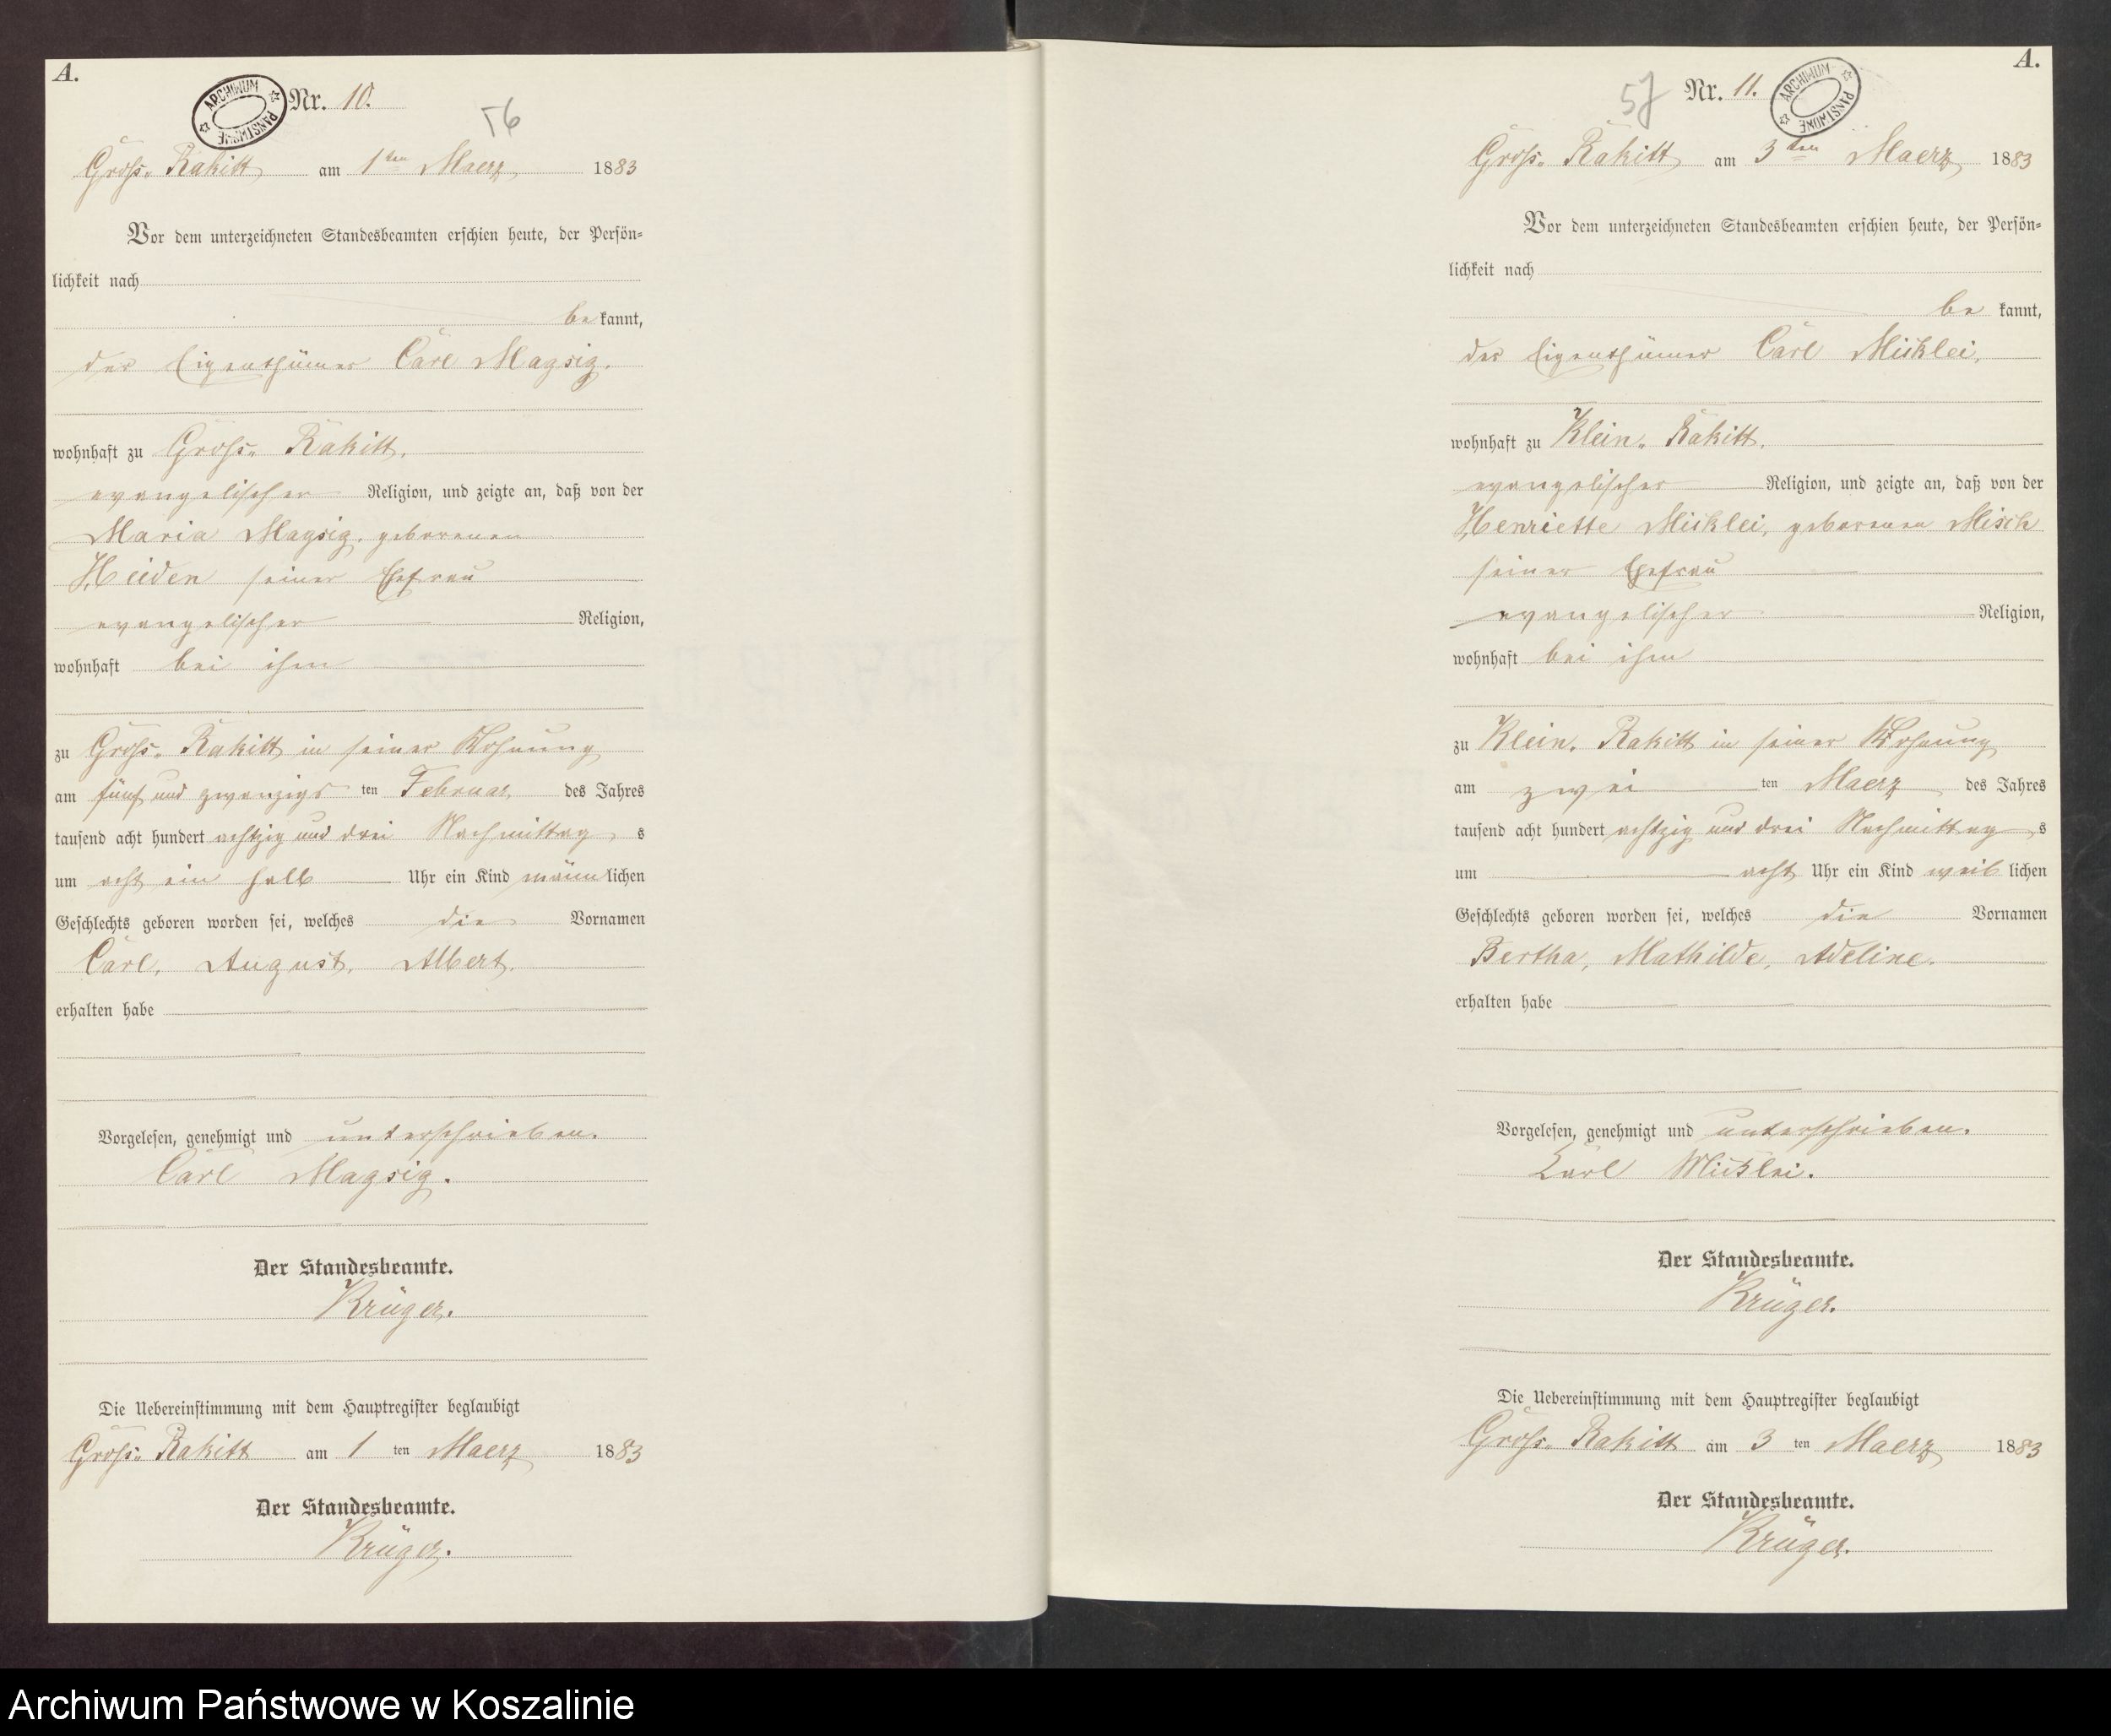 A.
ARCHIWUM PAŃSTWOWE
Nr. 10.
56
Gross. Rakitt am 1ten Maerz 1883
Vor dem unterzeichneten Standesbeamten erschien heute, der Persön-
lichkeit nach
be kannt,
der Eigenthümer Carl Magsig.
wohnhaft zu Gross. Rakitt.
evangelischer Religion, und zeigte an, daß von der
Maria Magsig, geborenen
Heiden seiner Ehefrau
evangelischer Religion,
wohnhaft bei ihm
zu Gross. Rakitt in seiner Wohnung
am fünf und zwanzigs ten Februar, des Jahres
tausend acht hundert achtzig und drei Nachmittag s
um acht ein halb Uhr ein Kind männ lichen
Geschlechts geboren worden sei, welches die Vornamen
Carl, August, Albert.
erhalten habe
Vorgelesen, genehmigt und unterschrieben.
Carl Magsig.
Der Standesbeamte.
Krüger.
Die Uebereinstimmung mit dem Hauptregister beglaubigt
Gross. Rakitt am 1 ten Maerz 1883
Der Standesbeamte.
Krüger.
A.
57
Nr. 11.
ARCHIWUM PAŃSTWOWE
Gross. Rakitt am 3ten Maerz 1883
Vor dem unterzeichneten Standesbeamten erschien heute, der Persön-
lichkeit nach
be kannt,
der Eigenthümer Carl Micklei,
wohnhaft zu Klein. Rakitt.
evangelischer Religion, und zeigte an, daß von der
Henriette Micklei, geborenen Misch
seiner Ehefrau
evangelischer Religion,
wohnhaft bei ihm
zu Klein. Rakitt in seiner Wohnung
am zwei ten Maerz des Jahres
tausend acht hundert achtzig und drei Nachmittag s
um acht Uhr ein Kind weib lichen
Geschlechts geboren worden sei, welches die Vornamen
Bertha, Mathilde, Adeline.
erhalten habe
Vorgelesen, genehmigt und unterschrieben.
Carl Micklei.
Der Standesbeamte.
Krüger.
Die Uebereinstimmung mit dem Hauptregister beglaubigt
Gross. Rakitt am 3 ten Maerz 1883
Der Standesbeamte.
Krüger.
Archiwum Państwowe w Koszalinie